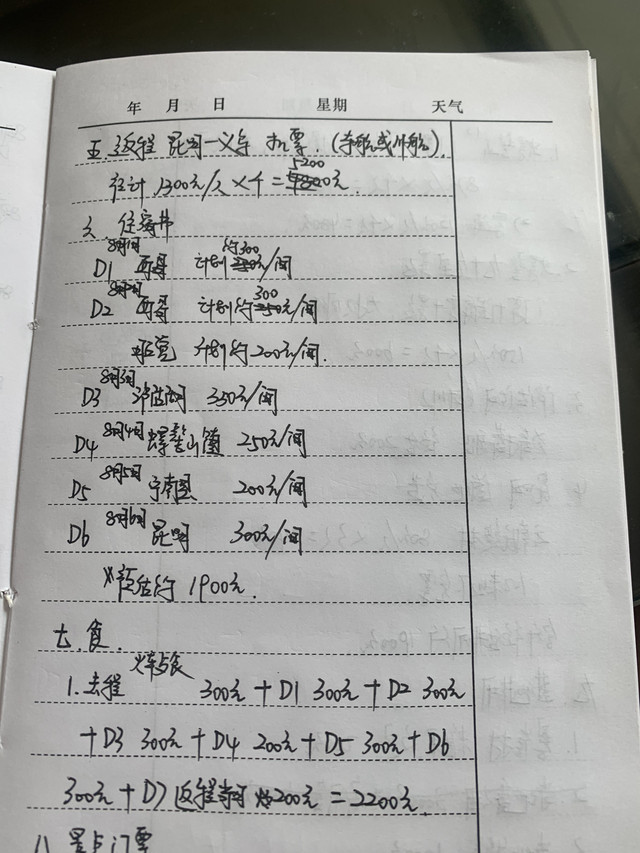 年 月 日 星期 天气
五.返程 昆明一义乌 机票.(
估计 1300元/人×4=5200元.
六.住宿书
D1 8月1日 西昌 计划约300元/间
D2 8月2日 西昌 计划约300元/间
计划约200元/间.
D3 8月3日 泸沽湖 350元/间
D4 8月4日 螺髻山镇 250元/间
D5 8月5日 宁南县 200元/间
D6 8月6日 昆明 300元/间
预估约 1900元.
七.食.
1.去程 火车与食 300元+D1 300元+D2 300元
+D3 300元+D4 200元+D5 300元+D6
300元+D7返程 200元=2200元.
八.景点门票